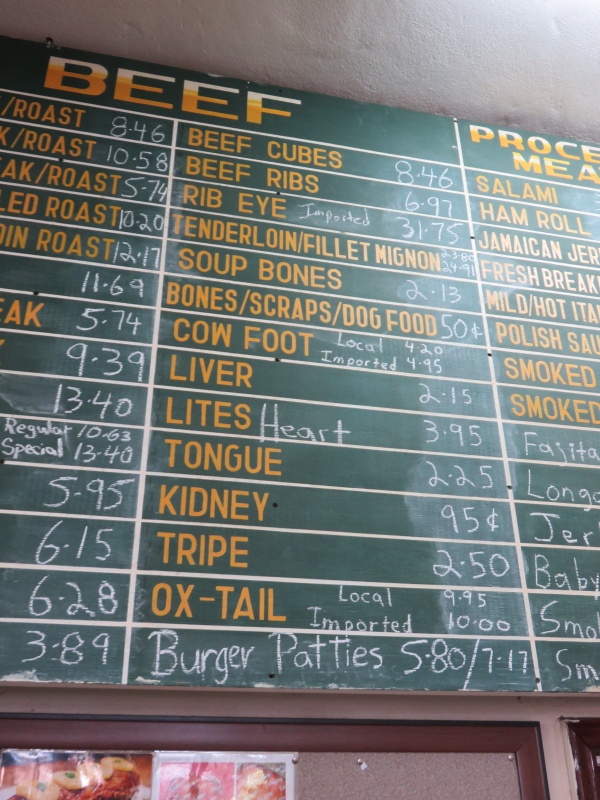 BEEF
/ROAST 8.46
K/ROAST 10.58
EAK/ROAST 5.74
LED ROAST 10.20
OIN ROAST 12.17
11.69
EAK 5.74
9.39
13.40
Regular 10.63
Special 13.40
5.95
6.15
6.28
3.89
BEEF CUBES 8.46
BEEF RIBS 6.97
RIB EYE Imported 31.75
TENDERLOIN/FILLET MIGNON 23.80
24.91
SOUP BONES 2.13
BONES/SCRAPS/DOG FOOD 50¢
COW FOOT Local 4.20
Imported 4.95
LIVER 2.15
LITES Heart 3.95
TONGUE 2.25
KIDNEY 95¢
TRIPE 2.50
OX-TAIL Local 9.95
Imported 10.00
Burger Patties 5.80/7.17
PROCE
MEA
SALAMI
HAM ROLL
JAMAICAN JER
FRESH BREAK
MILD/HOT ITA
POLISH SAU
SMOKED
SMOKED
Fajita
Longa
Jer
Baby
Smo
Sm